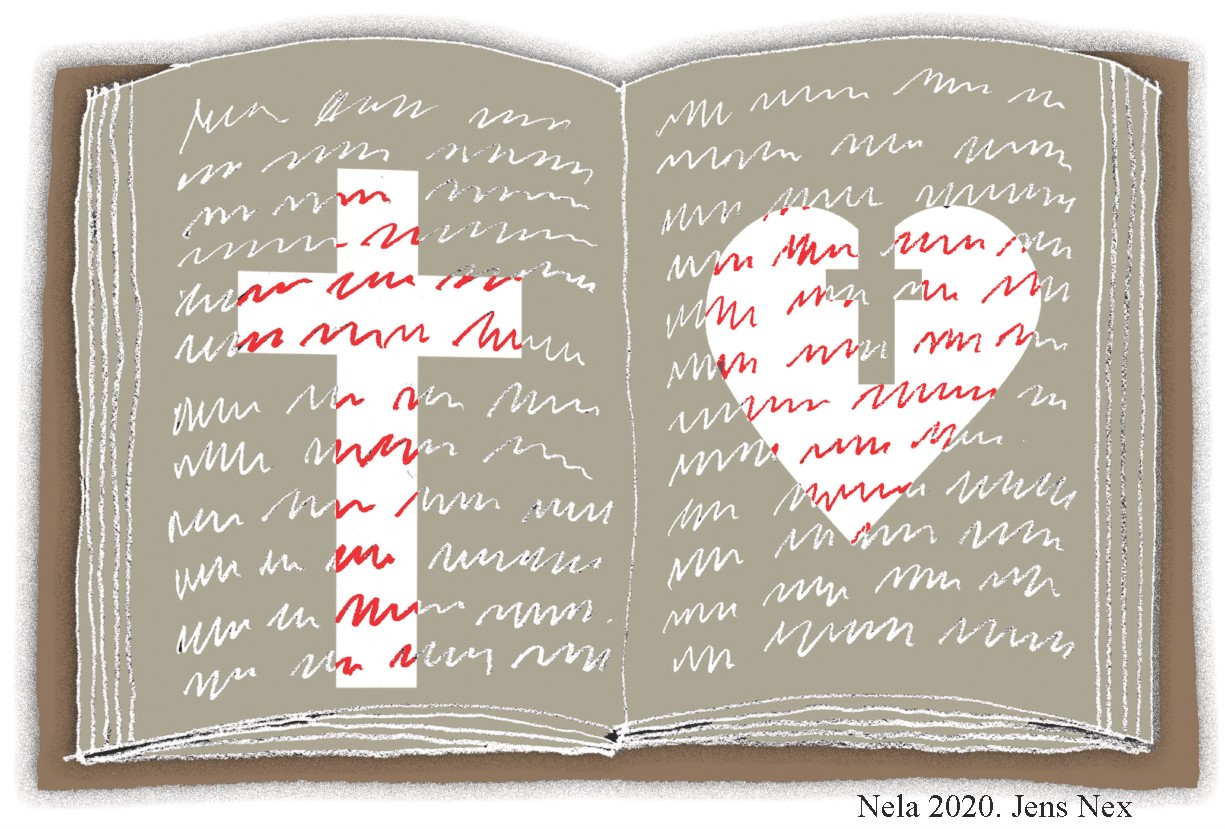 Nela 2020. Jens Nex